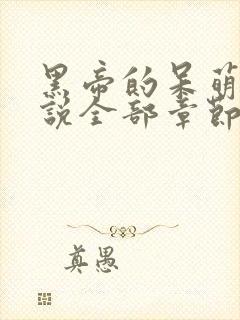 黑帝的呆萌
說全部章節
真愚